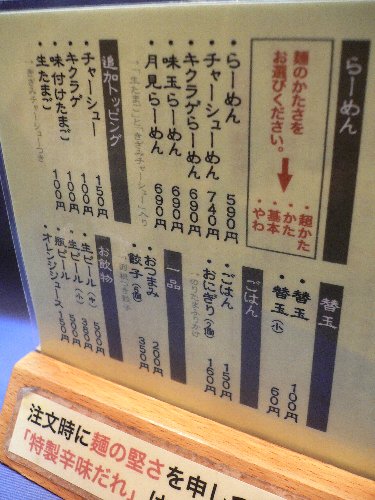 らーめん
麺のかたさを
お選びください。
・超かた
・かた
・基本
・やわ
・らーめん 590円
・チャーシューめん 740円
・キクラゲらーめん 690円
・味玉らーめん 690円
・月見らーめん 690円
追加トッピング
・チャーシュー 150円
・キクラゲ 100円
・味付けたまご 100円
・生たまご
替玉
・替玉 100円
・替玉(小) 60円
ごはん
・ごはん 150円
・おにぎり 160円
一品
・おつまみ 200円
・餃子 350円
お飲物
・生ビール(大) 500円
・生ビール(小)
・瓶ビール 500円
・オレンジジュース 150円
注文時に麺の堅さを申し
「特製辛味だれ」は